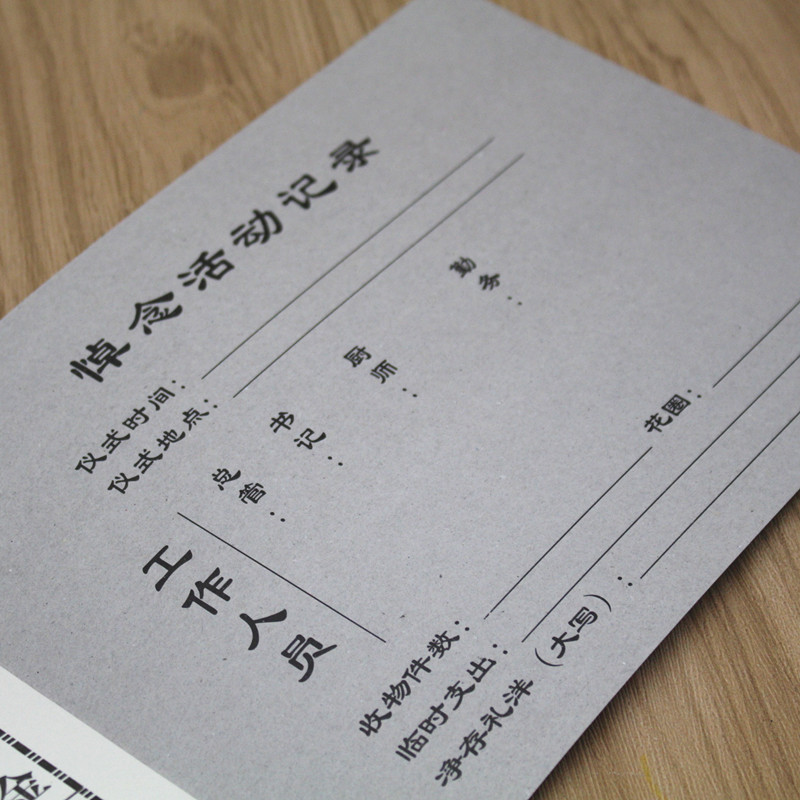 悼念活动记录
仪式时间：
仪式地点：
工作人员
总管：
书记：
厨师：
勤务：
收物件数：
花圈：
临时支出：
净存礼洋（大写）：
金